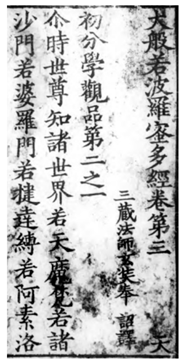 大般若波羅蜜多經卷第三 天
三藏法師玄奘奉 詔譯
初分學觀品第二之一
尒時世尊知諸世界若天魔梵若諸
沙門若婆羅門若揵達縛若阿素洛